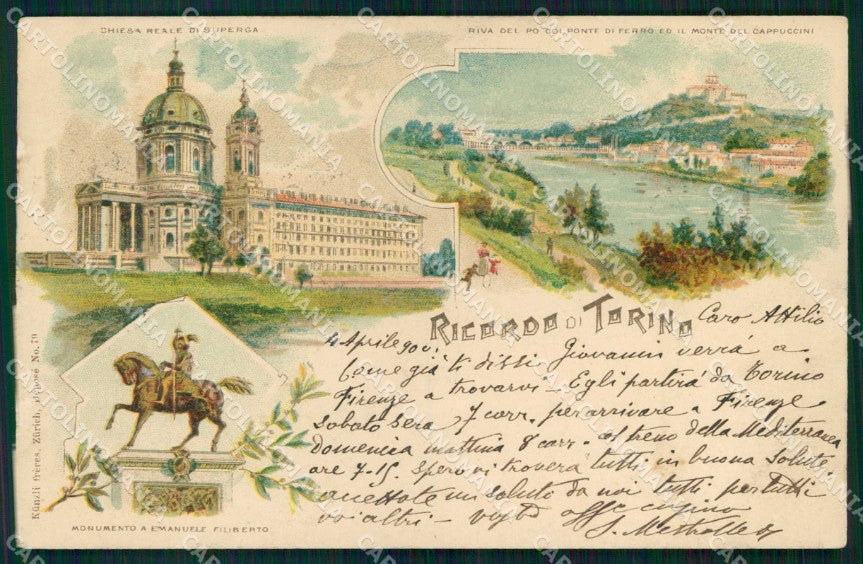 CHIESA REALE DI SUPERGA
RIVA DEL PO COL PONTE DI FERRO ED IL MONTE DEI CAPPUCCINI
RICORDO DI TORINO
Caro Attilio
4 Aprile 900.
Come già ti dissi Giovanni verrà a
Firenze a trovarvi - Egli partirà da Torino
Sabato sera 7 corr. per arrivare a Firenze
domenica mattina 8 corr. - al treno della Mediterranea
ore 7-15. spero vi troverà tutti in buona salute
accettate un saluto da noi tutti per tutti
voi altri - vostro affmo cugino
MONUMENTO A EMANUELE FILIBERTO
Künzli frères, Zürich, déposé No. 79
CARTOLINOMANIA